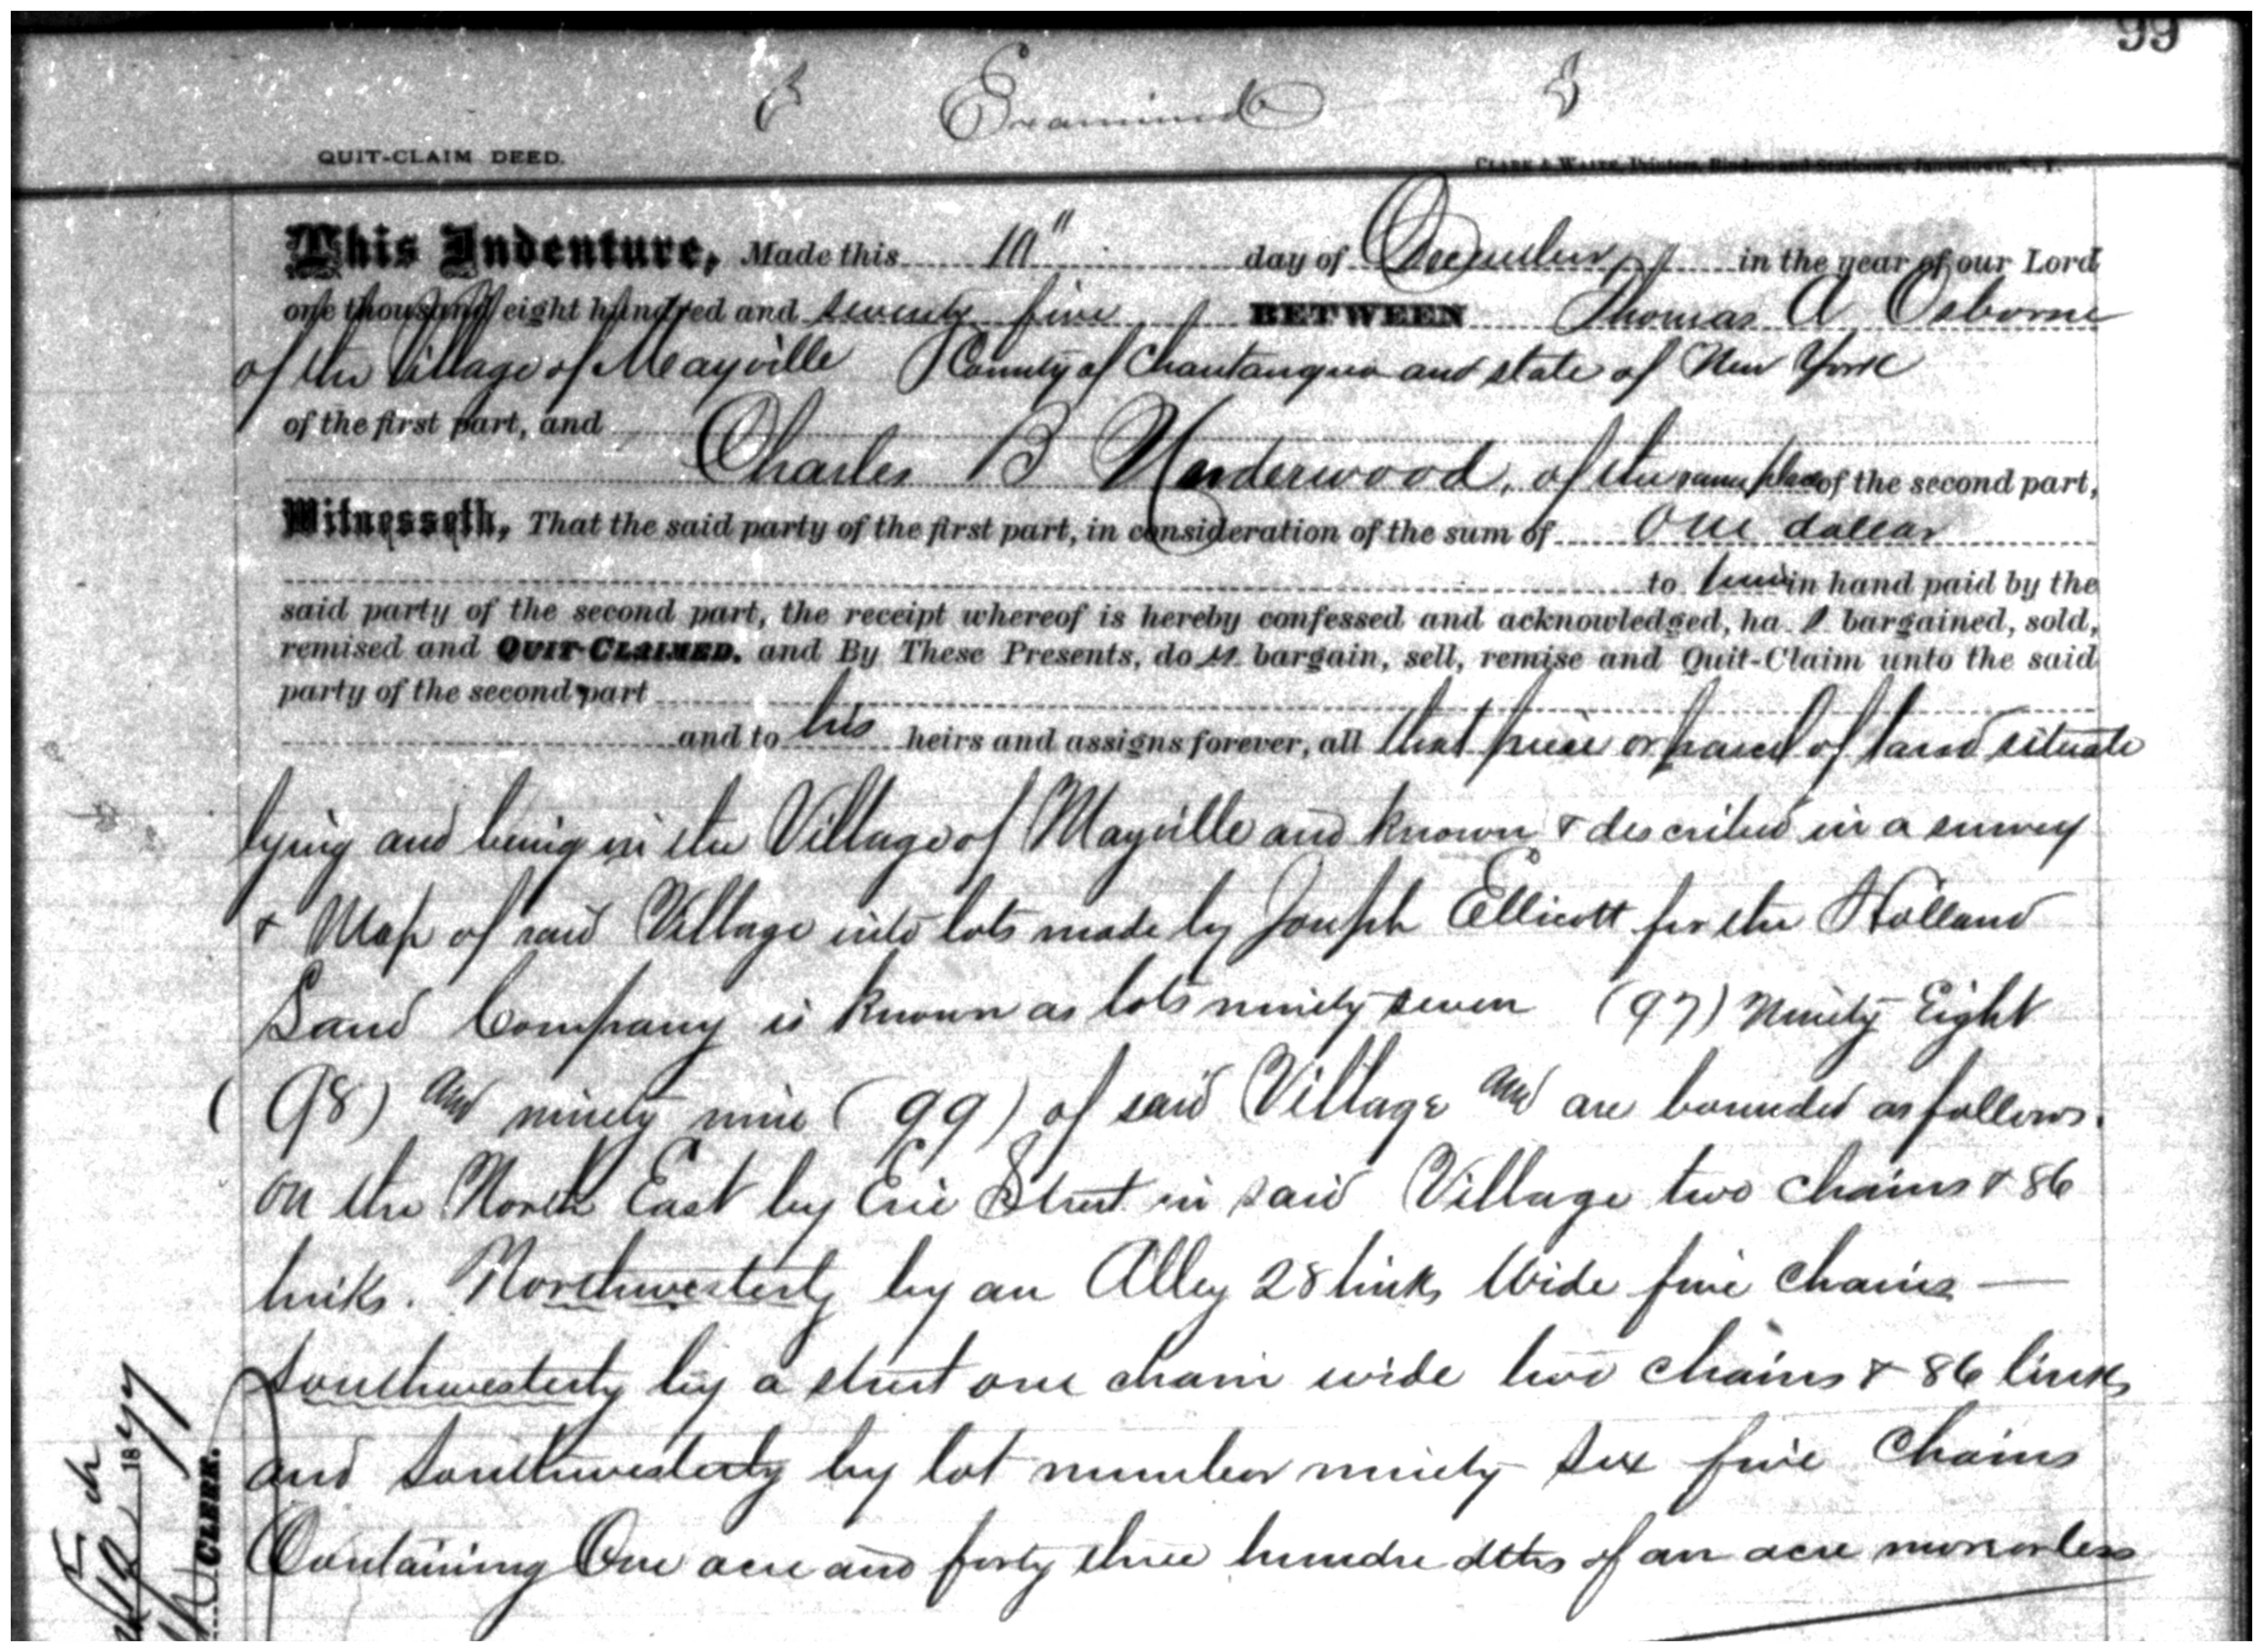 99
Examined
QUIT-CLAIM DEED.
CLARK & WAITE, Printers, Binders and Stationers, Jamestown, N. Y.
This Indenture, Made this 10" day of December in the year of our Lord
one thousand eight hundred and seventy five BETWEEN Thomas A Osborne
of the Village of Mayville County of Chautauqua and state of New York
of the first part, and
Charles B Underwood, of the same place of the second part,
Witnesseth, That the said party of the first part, in consideration of the sum of One dollar
to him in hand paid by the
said party of the second part, the receipt whereof is hereby confessed and acknowledged, ha s bargained, sold,
remised and QUIT-CLAIMED. and By These Presents, do es bargain, sell, remise and Quit-Claim unto the said
party of the second part
and to his heirs and assigns forever, all that piece or parcel of land situate
lying and being in the Village of Mayville and known & described in a survey
& Map of said Village into lots made by Joseph Ellicott for the Holland
Land Company is known as lots ninety seven (97) Ninety Eight
(98) and ninety nine (99) of said Village and are bounded as follows.
on the North East by Erie Street in said Village two chains & 86
links. Northwesterly by an Alley 28 links Wide five chains —
Southwesterly by a street one chain wide two chains & 86 links
and Southwesterly by lot number ninety six five Chains
Containing One acre and forty three hundre dths of an acre more or less
1877
CLERK.